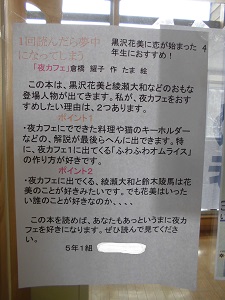 1回読んだら夢中
になってしまう
黒沢花美に恋が始まった 4
年生におすすめ！
「夜カフェ」倉橋 燿子 作 たま 絵
この本は、黒沢花美と綾瀬大和などのおもな
登場人物が出てきます。私が、夜カフェをおす
すめしたい理由は、2つあります。
ポイント1
・夜カフェにでてきた料理や猫のキーホルダー
などの、解説が最後らへんに出てきます。特
に、夜カフェ1に出てくる「ふわふわオムライス」
の作り方が好きです。
ポイント2
・夜カフェに出てくる、綾瀬大和と鈴木陵馬は花
美のことが好きみたいです。でも花美はいった
い誰のことが好きなのか、、、、
この本を読めば、あなたもあっというまに夜カ
フェを好きになります。ぜひ読んで見てくださ
い。
5年1組